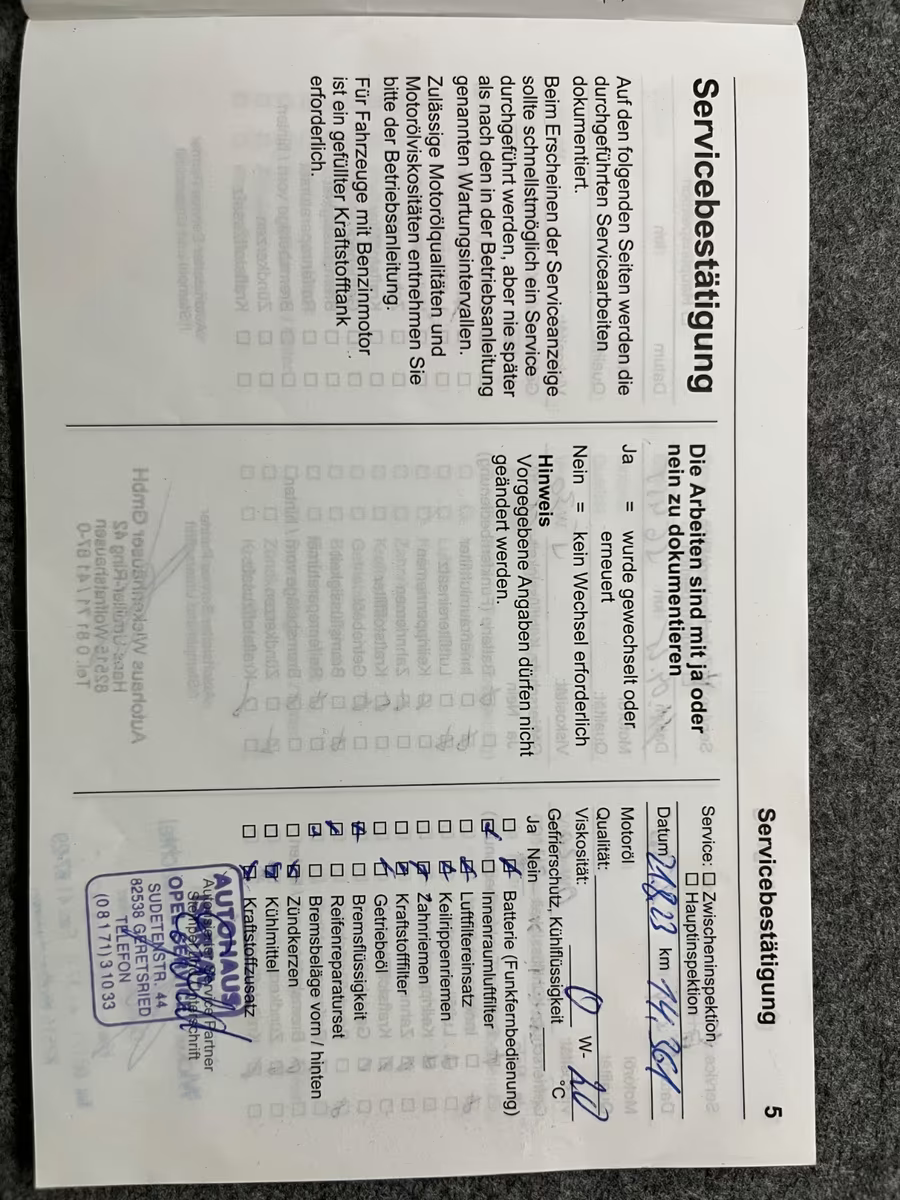 Servicebestätigung
Auf den folgenden Seiten werden die
durchgeführten Servicearbeiten
dokumentiert.
Beim Erscheinen der Serviceanzeige
sollte schnellstmöglich ein Service
durchgeführt werden, aber nie später
als nach den in der Betriebsanleitung
genannten Wartungsintervallen.
Zulässige Motorölqualitäten und
Motorölviskositäten entnehmen Sie
bitte der Betriebsanleitung.
Für Fahrzeuge mit Benzinmotor
ist ein gefüllter Kraftstofftank
erforderlich.
Die Arbeiten sind mit ja oder
nein zu dokumentieren
Ja = wurde gewechselt oder
erneuert
Nein = kein Wechsel erforderlich
Hinweis
Vorgegebene Angaben dürfen nicht
geändert werden.
Servicebestätigung 5
Service: ☐ Zwischeninspektion
☐ Hauptinspektion
Datum 21.8.23 km 14,361
Motoröl
Qualität:
Viskosität: 0 W- 20
Gefrierschutz, Kühlflüssigkeit °C
Ja Nein
Batterie (Funkfernbedienung)
Innenraumluftfilter
Luftfiltereinsatz
Keilrippenriemen
Zahnriemen
Kraftstofffilter
Getriebeöl
Bremsflüssigkeit
Reifenreparaturset
Bremsbeläge vorn / hinten
Zündkerzen
Kühlmittel
Kraftstoffzusatz
AUTOHAUS
OPEL
SUDETENSTR. 44
82538 GERETSRIED
TELEFON
(0 81 71) 3 10 33